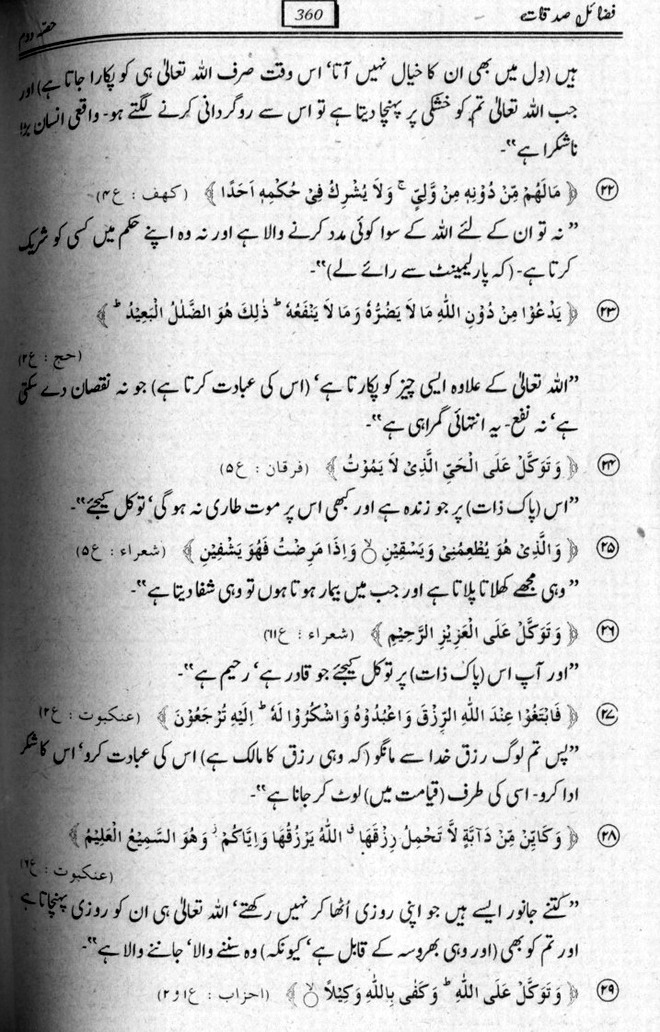 فضائل صدقات 360 حصہ دوم
ہیں (دل میں بھی ان کا خیال نہیں آتا‘ اس وقت صرف اللہ تعالیٰ ہی کو پکارا جاتا ہے) اور
جب اللہ تعالیٰ تم کو خشکی پر پہنچا دیتا ہے تو اس سے روگردانی کرنے لگتے ہو۔ واقعی انسان بڑا
ناشکرا ہے“۔
۲۲ ﴿ مَالَهُمْ مِّنْ دُوْنِهٖ مِنْ وَّلِيٍّ ۚ وَلَا يُشْرِكُ فِيْ حُكْمِهٖ اَحَدًا ﴾ (کہف : ع۴)۔
”نہ تو ان کے لئے اللہ کے سوا کوئی مدد کرنے والا ہے اور نہ وہ اپنے حکم میں کسی کو شریک
کرتا ہے۔ (کہ پارلیمینٹ سے رائے لے)“۔
۲۳ ﴿ يَدْعُوْا مِنْ دُوْنِ اللّٰهِ مَا لَا يَضُرُّهٗ وَمَا لَا يَنْفَعُهٗ ؕ ذٰلِكَ هُوَ الضَّلٰلُ الْبَعِيْدُ ؕ ﴾
(حج : ع۲)
”اللہ تعالیٰ کے علاوہ ایسی چیز کو پکارتا ہے‘ (اس کی عبادت کرتا ہے) جو نہ نقصان دے سکتی
ہے‘ نہ نفع۔ یہ انتہائی گمراہی ہے“۔
۲۴ ﴿ وَتَوَكَّلْ عَلَى الْحَيِّ الَّذِيْ لَا يَمُوْتُ ﴾ (فرقان : ع۵)
”اس (پاک ذات) پر جو زندہ ہے اور کبھی اس پر موت طاری نہ ہو گی‘ توکل کیجئے“۔
۲۵ ﴿ وَالَّذِيْ هُوَ يُطْعِمُنِيْ وَيَسْقِيْنِ ۙ وَاِذَا مَرِضْتُ فَهُوَ يَشْفِيْنِ ﴾ (شعراء : ع۵)
”وہی مجھے کھلاتا پلاتا ہے اور جب میں بیمار ہوتا ہوں تو وہی شفا دیتا ہے“۔
۲۶ ﴿ وَتَوَكَّلْ عَلَى الْعَزِيْزِ الرَّحِيْمِ ﴾ (شعراء : ع۱۱)
”اور آپ اس (پاک ذات) پر توکل کیجئے جو قادر ہے‘ رحیم ہے“۔
۲۷ ﴿ فَابْتَغُوْا عِنْدَ اللّٰهِ الرِّزْقَ وَاعْبُدُوْهُ وَاشْكُرُوْا لَهٗ ؕ اِلَيْهِ تُرْجَعُوْنَ ﴾ (عنکبوت : ع۲)
”پس تم لوگ رزق خدا سے مانگو (کہ وہی رزق کا مالک ہے) اس کی عبادت کرو‘ اس کا شکر
ادا کرو۔ اسی کی طرف (قیامت میں) لوٹ کر جانا ہے“۔
۲۸ ﴿ وَكَاَيِّنْ مِّنْ دَآبَّةٍ لَّا تَحْمِلُ رِزْقَهَا ۖ اَللّٰهُ يَرْزُقُهَا وَاِيَّاكُمْ ۖ وَهُوَ السَّمِيْعُ الْعَلِيْمُ ﴾
(عنکبوت : ع۶)
”کتنے جانور ایسے ہیں جو اپنی روزی اُٹھا کر نہیں رکھتے‘ اللہ تعالیٰ ہی ان کو روزی پہنچاتا ہے
اور تم کو بھی (اور وہی بھروسہ کے قابل ہے‘ کیونکہ) وہ سننے والا‘ جاننے والا ہے“۔
۲۹ ﴿ وَتَوَكَّلْ عَلَى اللّٰهِ ؕ وَكَفٰى بِاللّٰهِ وَكِيْلًا ۙ ﴾ (احزاب : ع۱و۲)